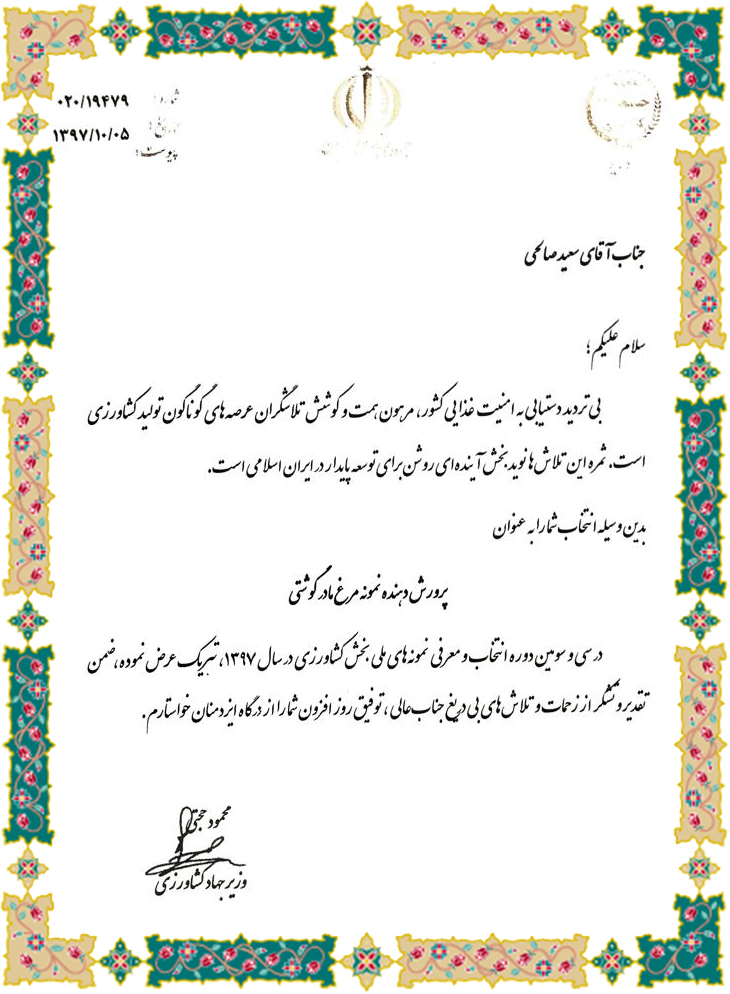 شماره: ۰۲۰/۱۹۴۷۹
تاریخ: ۱۳۹۷/۱۰/۰۵
پیوست:
جناب آقای سعید صالحی
سلام علیکم؛
بی تردید دستیابی به امنیت غذایی کشور، مرهون همت و کوشش تلاشگران عرصه های گوناگون تولید کشاورزی
است. ثمره این تلاش ها نوید بخش آینده ای روشن برای توسعه پایدار در ایران اسلامی است.
بدین وسیله انتخاب شما را به عنوان
پرورش دهنده نمونه مرغ مادر گوشتی
در سی و سومین دوره انتخاب و معرفی نمونه های ملی بخش کشاورزی در سال ۱۳۹۷، تبریک عرض نموده، ضمن
تقدیر و تشکر از زحمات و تلاش های بی دریغ جناب عالی، توفیق روز افزون شما را از درگاه ایزد منان خواستارم.
محمود حجتی
وزیر جهاد کشاورزی